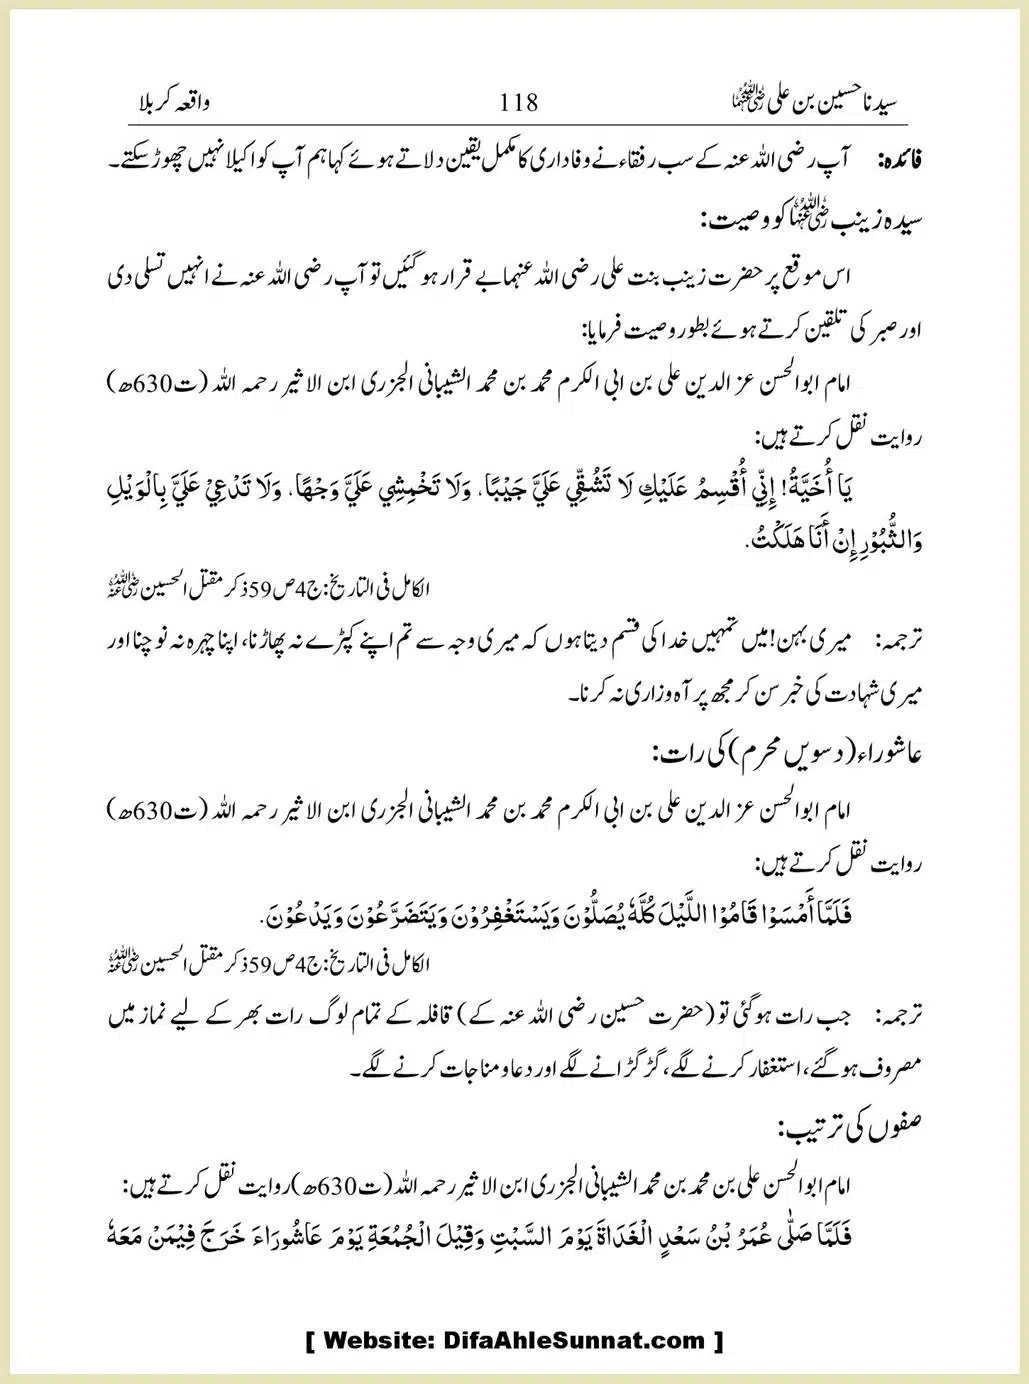 سیدنا حسین بن علی رضی اللہ عنہما 118 واقعہ کربلا
فائدہ: آپ رضی اللہ عنہ کے سب رفقاء نے وفاداری کا مکمل یقین دلاتے ہوئے کہا ہم آپ کو اکیلا نہیں چھوڑ سکتے۔
سیدہ زینب رضی اللہ عنہا کو وصیت:
اس موقع پر حضرت زینب بنت علی رضی اللہ عنہما بے قرار ہو گئیں تو آپ رضی اللہ عنہ نے انہیں تسلی دی
اور صبر کی تلقین کرتے ہوئے بطور وصیت فرمایا:
امام ابوالحسن عز الدین علی بن ابی الکرم محمد بن محمد الشیبانی الجزری ابن الاثیر رحمہ اللہ (ت630ھ)
روایت نقل کرتے ہیں:
يَا أُخَيَّةُ! إِنِّي أُقْسِمُ عَلَيْكِ لَا تَشُقِّي عَلَيَّ جَيْبًا، وَلَا تَخْمِشِي عَلَيَّ وَجْهًا، وَلَا تَدْعِيْ عَلَيَّ بِالْوَيْلِ
وَالثُّبُوْرِ إِنْ أَنَا هَلَكْتُ.
الکامل فی التاریخ: ج4ص59 ذکر مقتل الحسین رضی اللہ عنہ
ترجمہ: میری بہن! میں تمہیں خدا کی قسم دیتا ہوں کہ میری وجہ سے تم اپنے کپڑے نہ پھاڑنا، اپنا چہرہ نہ نوچنا اور
میری شہادت کی خبر سن کر مجھ پر آہ وزاری نہ کرنا۔
عاشوراء (دسویں محرم) کی رات:
امام ابوالحسن عز الدین علی بن ابی الکرم محمد بن محمد الشیبانی الجزری ابن الاثیر رحمہ اللہ (ت630ھ)
روایت نقل کرتے ہیں:
فَلَمَّا أَمْسَوْا قَامُوْا اللَّيْلَ كُلَّهٗ يُصَلُّوْنَ وَيَسْتَغْفِرُوْنَ وَيَتَضَرَّعُوْنَ وَيَدْعُوْنَ.
الکامل فی التاریخ: ج4ص59 ذکر مقتل الحسین رضی اللہ عنہ
ترجمہ: جب رات ہوگئی تو (حضرت حسین رضی اللہ عنہ کے) قافلہ کے تمام لوگ رات بھر کے لیے نماز میں
مصروف ہو گئے، استغفار کرنے لگے، گڑگڑانے لگے اور دعا و مناجات کرنے لگے۔
صفوں کی ترتیب:
امام ابوالحسن علی بن محمد بن محمد الشیبانی الجزری ابن الاثیر رحمہ اللہ (ت630ھ) روایت نقل کرتے ہیں:
فَلَمَّا صَلّٰى عُمَرُ بْنُ سَعْدٍ الْغَدَاةَ يَوْمَ السَّبْتِ وَقِيْلَ الْجُمُعَةِ يَوْمَ عَاشُورَاءَ خَرَجَ فِيْمَنْ مَعَهٗ
[ Website: DifaAhleSunnat.com ]